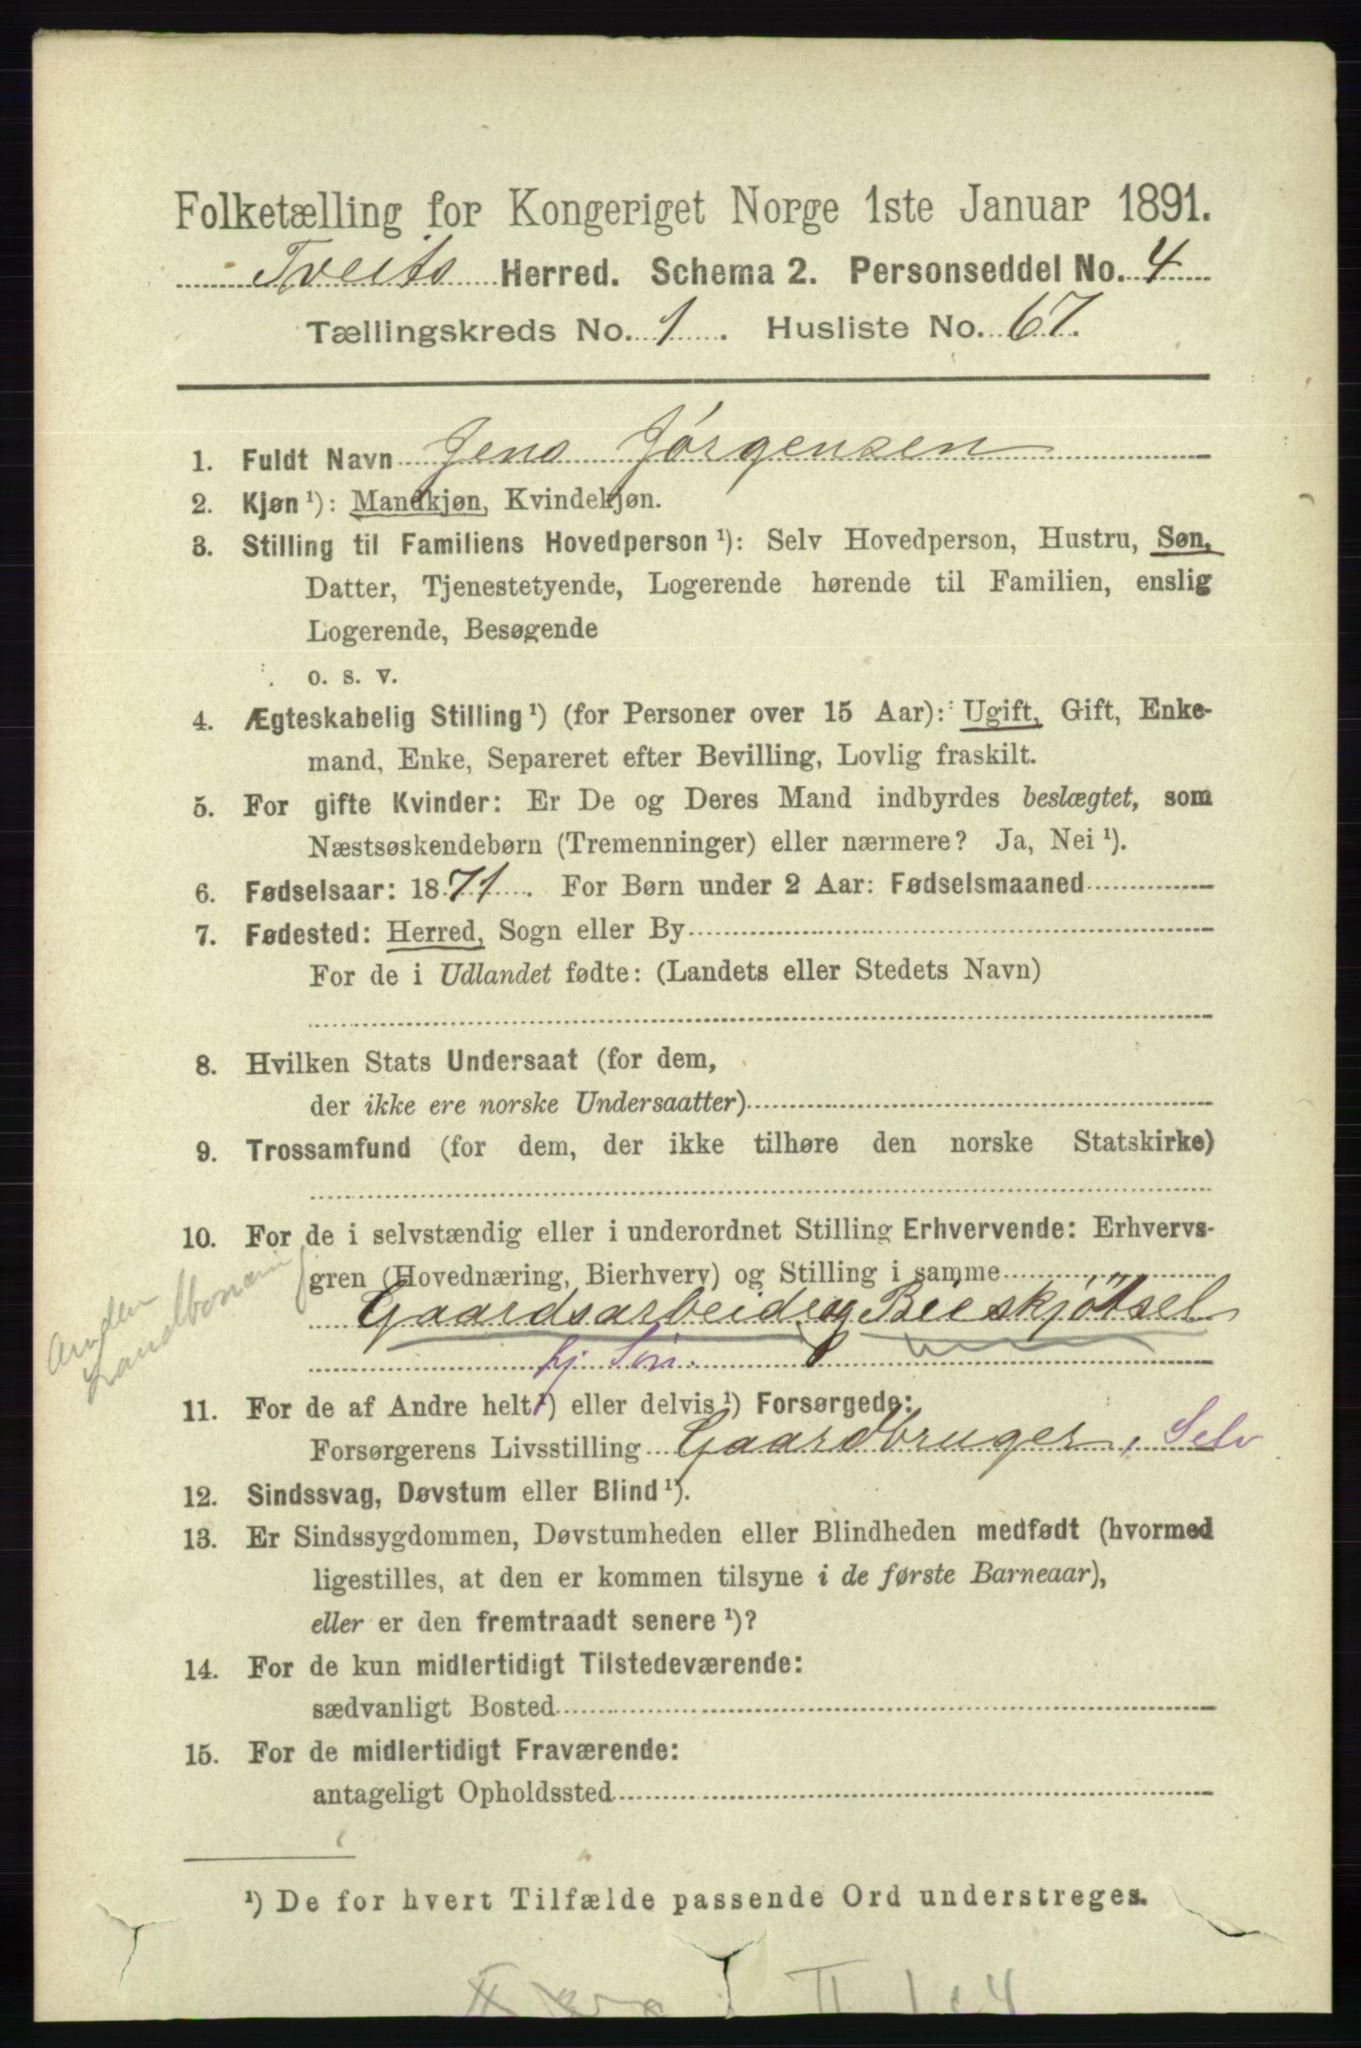 Folketælling for Kongeriget Norge 1ste Januar 1891.
Tveits Herred. Schema 2. Personseddel No. 4
Tællingskreds No. 1. Husliste No. 67.
1. Fuldt Navn Jens Jørgensen
2. Kjøn ¹): Mandkjøn, Kvindekjøn.
3. Stilling til Familiens Hovedperson ¹): Selv Hovedperson, Hustru, Søn,
Datter, Tjenestetyende, Logerende hørende til Familien, enslig
Logerende, Besøgende
o. s. v.
4. Ægteskabelig Stilling ¹) (for Personer over 15 Aar): Ugift, Gift, Enke-
mand, Enke, Separeret efter Bevilling, Lovlig fraskilt.
5. For gifte Kvinder: Er De og Deres Mand indbyrdes beslægtet, som
Næstsøskendebørn (Tremenninger) eller nærmere? Ja, Nei ¹).
6. Fødselsaar: 1871. For Børn under 2 Aar: Fødselsmaaned
7. Fødested: Herred, Sogn eller By
For de i Udlandet fødte: (Landets eller Stedets Navn)
8. Hvilken Stats Undersaat (for dem,
der ikke ere norske Undersaatter)
9. Trossamfund (for dem, der ikke tilhøre den norske Statskirke)
10. For de i selvstændig eller i underordnet Stilling Erhvervende: Erhvervs-
gren (Hovednæring, Bierhverv) og Stilling i samme
Gaardsarbeide og Bieskjøtsel
hj. Søn.
Anden
11. For de af Andre helt ¹) eller delvis ¹) Forsørgede:
Forsørgerens Livsstilling Gaardbruger, Selv
12. Sindssvag, Døvstum eller Blind ¹).
13. Er Sindssygdommen, Døvstumheden eller Blindheden medfødt (hvormed
ligestilles, at den er kommen tilsyne i de første Barneaar),
eller er den fremtraadt senere ¹)?
14. For de kun midlertidigt Tilstedeværende:
sædvanligt Bosted
15. For de midlertidigt Fraværende:
antageligt Opholdssted
¹) De for hvert Tilfælde passende Ord understreges.